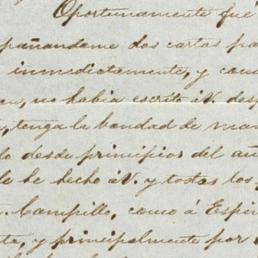 Oportunamente fué
pañandame dos cartas pa
inmediatamente, y com
no habia escrito á V. des
, tenga la bondad de man
lo desde principios del añ
le he hecho á V. y todas los
Campillo, como á Espir
ta, y principalmente por